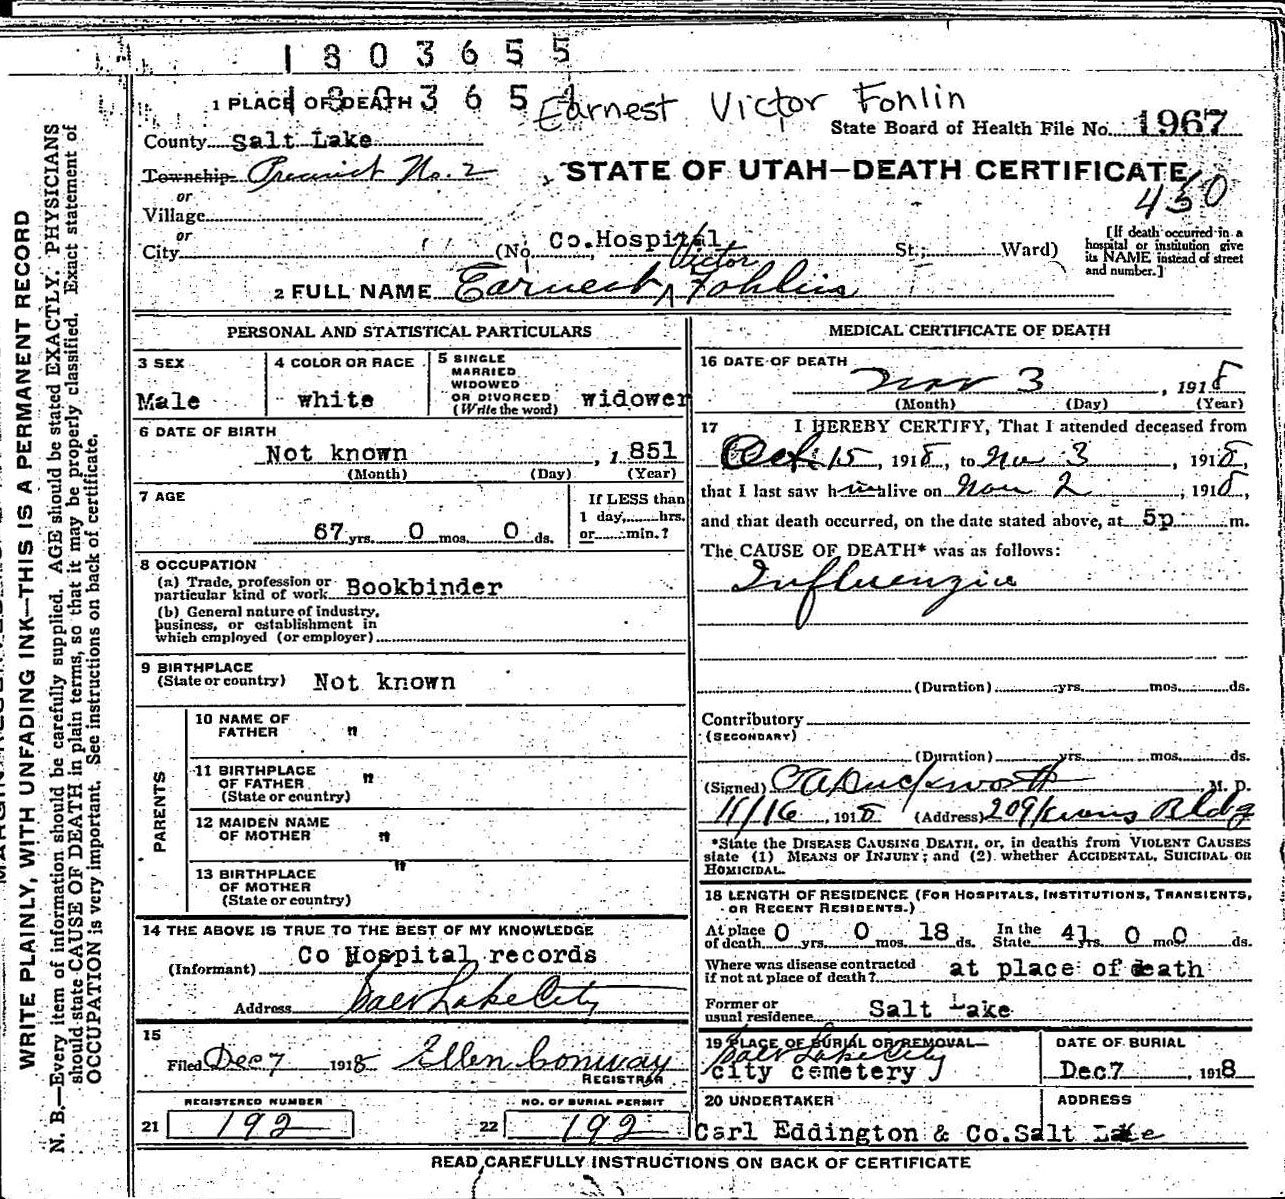 1803655
1803655
Earnest Victor Fohlin
1 PLACE OF DEATH
State Board of Health File No. 1967
County Salt Lake
STATE OF UTAH—DEATH CERTIFICATE
Township Precinct No. 2
450
or
Village
or
City (No. Co.Hospital St.; Ward)
[If death occurred in a hospital or institution give its NAME instead of street and number.]
Victor
2 FULL NAME Earnest ^ Fohlin
PERSONAL AND STATISTICAL PARTICULARS
3 SEX
Male
4 COLOR OR RACE
white
5 SINGLE
MARRIED
WIDOWED
OR DIVORCED
(Write the word) widower
6 DATE OF BIRTH
Not known , 1851
(Month) (Day) (Year)
7 AGE
67 yrs. 0 mos. 0 ds.
If LESS than
1 day, hrs.
or min.?
8 OCCUPATION
(a) Trade, profession or
particular kind of work Bookbinder
(b) General nature of industry,
business, or establishment in
which employed (or employer)
9 BIRTHPLACE
(State or country) Not known
PARENTS
10 NAME OF
FATHER "
11 BIRTHPLACE
OF FATHER
(State or country) "
12 MAIDEN NAME
OF MOTHER "
13 BIRTHPLACE
OF MOTHER
(State or country) "
14 THE ABOVE IS TRUE TO THE BEST OF MY KNOWLEDGE
(Informant) Co Hospital records
Address Salt Lake City
15
Filed Dec 7 1918 Ellen Conway
REGISTRAR
REGISTERED NUMBER
21 192
NO. OF BURIAL PERMIT
22 192
MEDICAL CERTIFICATE OF DEATH
16 DATE OF DEATH
Nov 3 , 1918
(Month) (Day) (Year)
17 I HEREBY CERTIFY, That I attended deceased from
Oct. 15, 1918, to Nov 3, 1918,
that I last saw him alive on Nov 2, 1918,
and that death occurred, on the date stated above, at 5p m.
The CAUSE OF DEATH* was as follows:
Influenzia
(Duration) yrs. mos. ds.
Contributory
(SECONDARY)
(Duration) yrs. mos. ds.
(Signed) Duckworth M. D.
11/16, 1918 (Address) 209 Bldg
*State the DISEASE CAUSING DEATH, or, in deaths from VIOLENT CAUSES
state (1) MEANS OF INJURY; and (2) whether ACCIDENTAL, SUICIDAL OR
HOMICIDAL.
18 LENGTH OF RESIDENCE (FOR HOSPITALS, INSTITUTIONS, TRANSIENTS,
OR RECENT RESIDENTS.)
At place
of death 0 yrs. 0 mos. 18 ds. In the
State 41 yrs. 0 mos 0 ds.
Where was disease contracted
if not at place of death? at place of death
Former or
usual residence Salt Lake
19 PLACE OF BURIAL OR REMOVAL
Salt Lake City
city cemetery
DATE OF BURIAL
Dec7 , 1918
20 UNDERTAKER
ADDRESS
Carl Eddington & Co. Salt Lake
READ CAREFULLY INSTRUCTIONS ON BACK OF CERTIFICATE
WRITE PLAINLY, WITH UNFADING INK—THIS IS A PERMANENT RECORD
N. B.—Every item of information should be carefully supplied. AGE should be stated EXACTLY. PHYSICIANS
should state CAUSE OF DEATH in plain terms, so that it may be properly classified. Exact statement of
OCCUPATION is very important. See instructions on back of certificate.